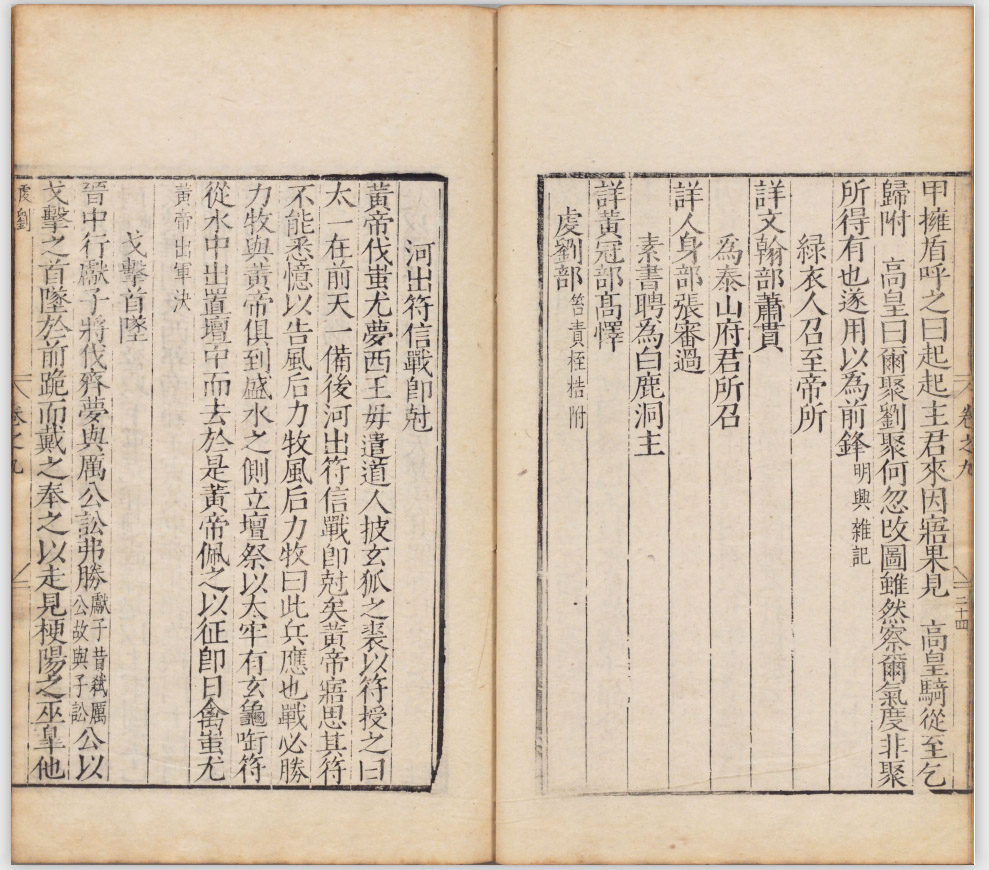 甲擁盾呼之曰起起主君來因寤果見　高皇騎從至乞
歸附　高皇曰爾聚劉聚何忽改圖雖然察爾氣度非聚
所得有也遂用以為前鋒明興雜記
緑衣人召至帝所
詳文翰部蕭貫
為泰山府君所召
詳人身部張審過
素書聘為白鹿洞主
詳黃冠部髙懌
虔劉部笞責桎梏附
河出符信戰卽尅
黃帝伐蚩尤夢西王母遣道人披玄狐之裘以符授之曰
太一在前天一備後河出符信戰卽尅矣黃帝寤思其符
不能悉憶以告風后力牧風后力牧曰此兵應也戰必勝
力牧與黃帝俱到盛水之側立壇祭以太牢有玄龜㗸符
從水中出置壇中而去於是黃帝佩之以征卽日禽蚩尤
黃帝出軍決
戈擊首墜
晉中行獻子將伐齊夢與厲公訟弗勝獻子昔弒厲公故與子訟公以
戈擊之首墜於前跪而戴之奉之以走見梗陽之巫皐他
卷之九
二十四
虔劉
卷之九